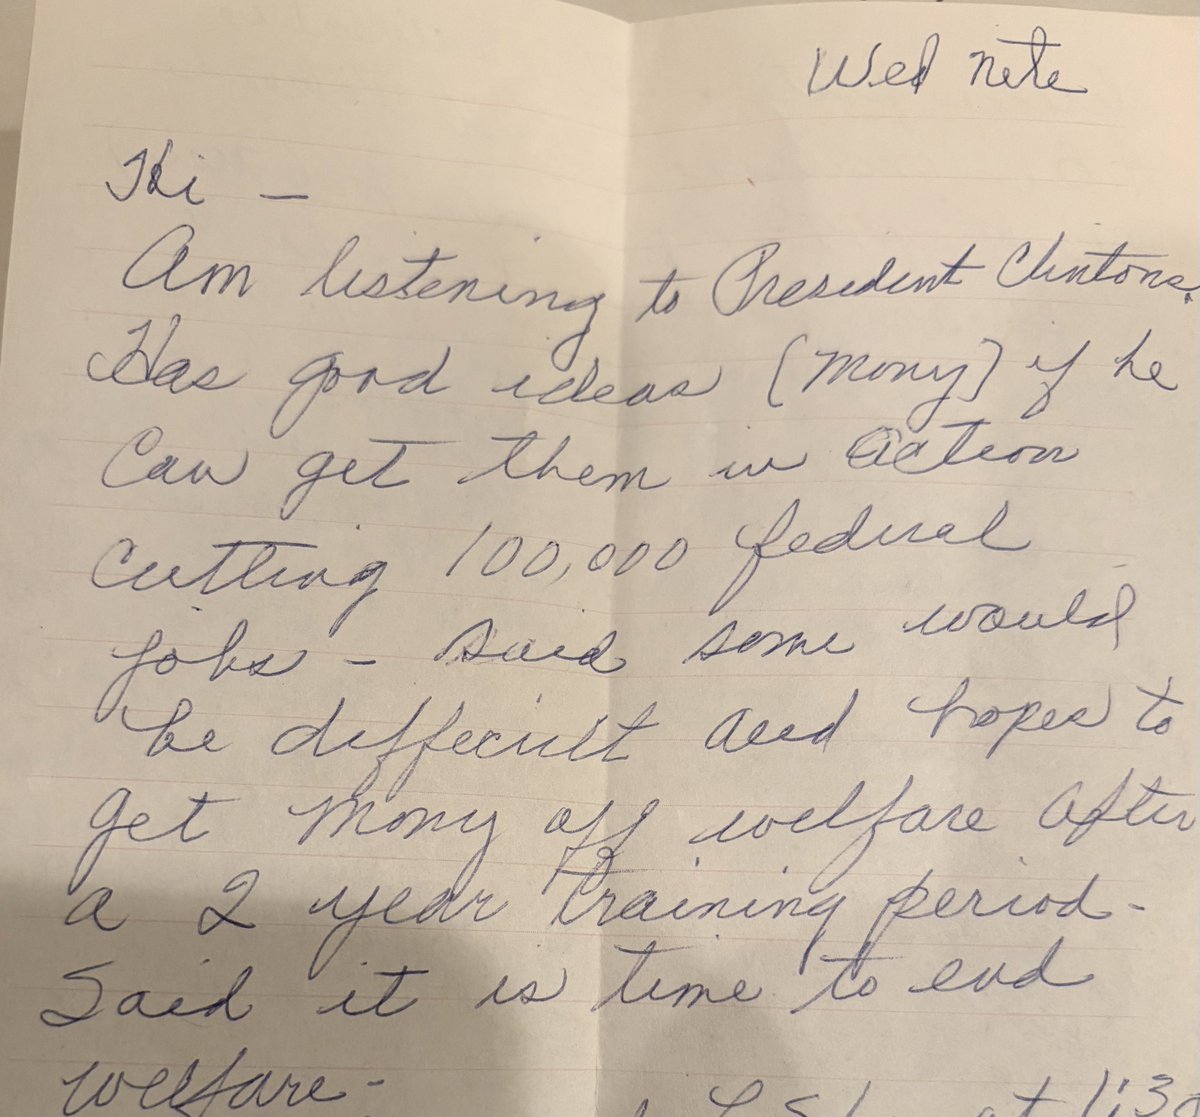 Wed nite
Hi –
Am listening to President Clintons.
Has good ideas (mony) if he
Can get them in action
Cutting 100,000 federal
jobs – said some would
be difficult and hopes to
get mony off welfare after
a 2 year training period -
Said it is time to end
welfare -
at 1:30